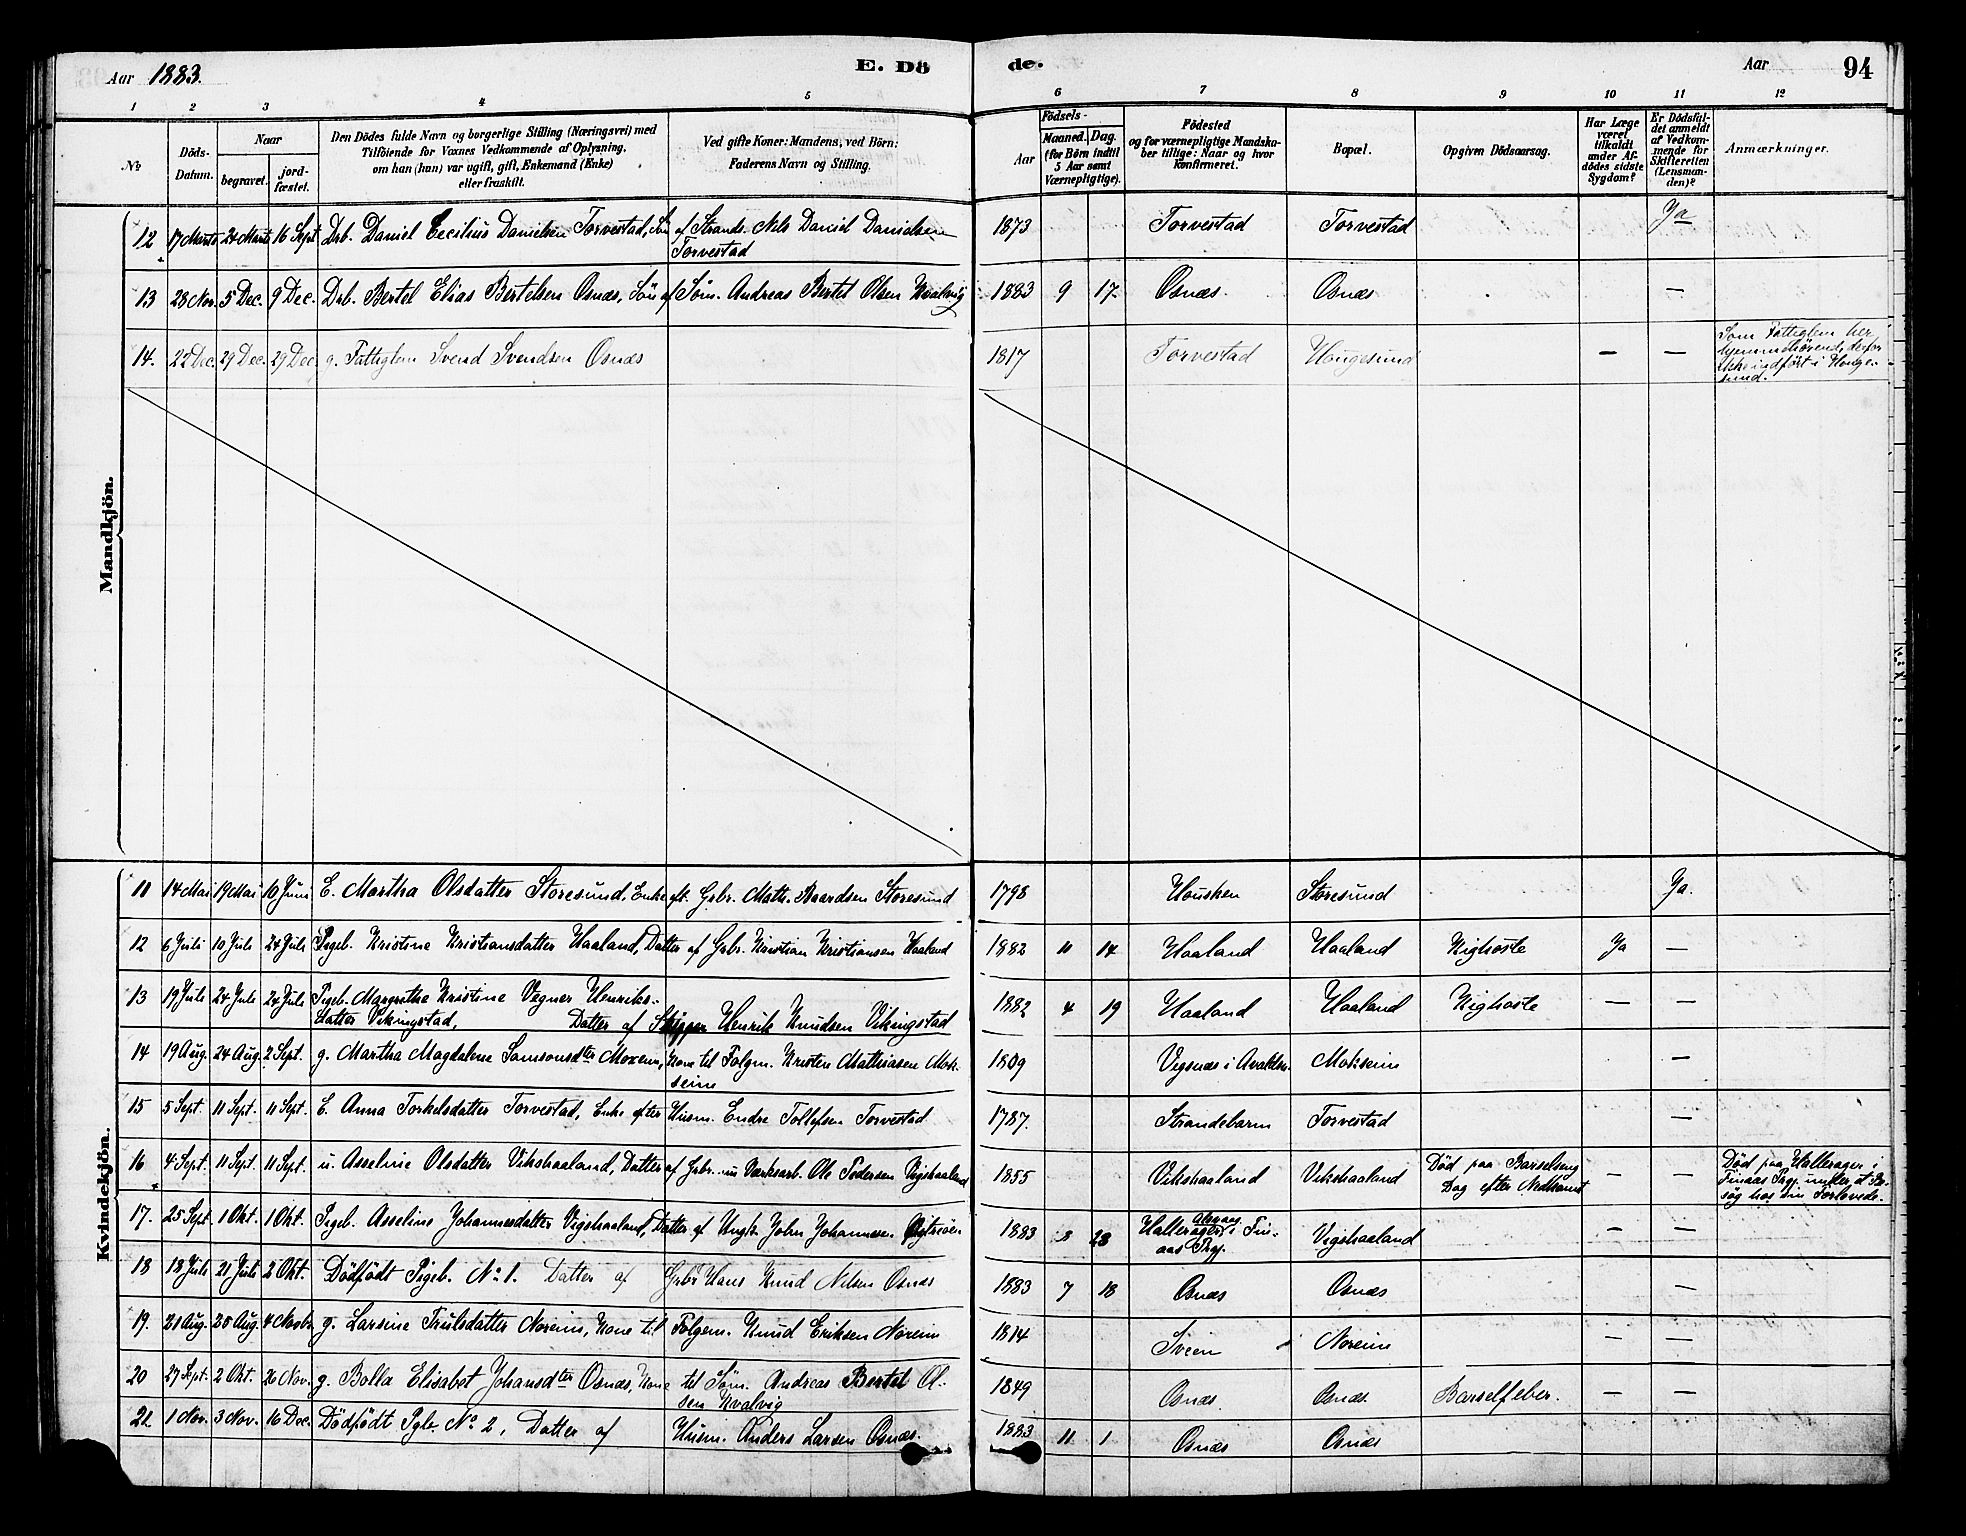 Aar 1883.
E. Dö
de.
Aar
94
1 2 3 4 5 6 7 8 9 10 11 12
No
Döds-Datum.
Naar
begravet.
jord-fæstet.
Den Dödes fulde Navn og borgerlige Stilling (Næringsvei) med
Tilföiende for Voxnes Vedkommende af Oplysning,
om han (hun) var ugift, gift, Enkemand (Enke)
eller fraskilt.
Ved gifte Koner: Mandens, ved Börn:
Faderens Navn og Stilling.
Födsels-
Aar
Maaned. Dag.
(for Börn indtil
5 Aar samt
Værnepligtige).
Födested
og for værnepligtige Mandska-
ber tillige: Naar og hvor
konfirmeret.
Bopæl.
Opgiven Dödsaarsag.
Har Læge
været
tilkaldt
under Af-
dödes sidste
Sygdom?
Er Dödsfal-
det anmeldt
af Vedkom-
mende for
Skifteretten
(Lensman-
den)?
Anmærkninger.
Mandkjön.
12 17 Marts 24 Marts 16 Sept Drb. Daniel Cecilius Danielsen Torvestad, Sön af Strands. Nils Daniel Danielsen 1873 Torvestad Torvestad Ya
Torvestad
13 28 Nov. 5 Dec. 9 Dec. Drb. Bertel Elias Bertelsen Osnæs, Sön af Söm. Andreas Bertel Olsen Kvalvig 1883 9 17. Osnæs. Osnæs —
14. 22 Dec. 29 Dec. 29 Dec. g. Fattiglem Svend Svendsen Osnæs 1817 Torvestad Hougesund — — Som Fattiglem her
hjemmehörende, derfor
ikke indfört i Houge-
sund.
Kvindekjön.
11 14 Mai 19 Mai 10 Juni E. Martha Olsdatter Storesund, Enke eft. Grbr. Math. Baardsen Storesund 1798 Housken Storesund Ya.
12 6 Juli 10 Juli 24 Juli Pigeb. Kristine Kristiansdatter Haaland, Datter af Grbr. Kristian Kristiansen Haaland 1882 11 14 Haaland Haaland Kighoste Ya —
13 19 Juli 24 Juli 24 Juli Pigeb. Margrethe Kristine Vegner Henriks-
datter Vikingstad, Datter af Skipper Henrik Knudsen Vikingstad 1882 4 19 Haaland Haaland Kighoste — —
14 19 Aug. 24 Aug. 2 Sept. g. Martha Magdalene Samsonsdter Moxeim, Kone til Folgm. Kristen Mathiasen Mok-
seim 1809 Vigsnæs i Avaldsn. Mokseim —
15 5 Sept. 11 Sept. 11 Sept. E. Anna Torkelsdatter Torvestad, Enke efter Husm. Endre Tollefsen Torvestad 1787. Strandebarm Torvestad —
16 4 Sept. 11 Sept. 11 Sept. u. Asseline Olsdatter Vikshaaland, Datter af Grbr. nu Værksarb. Ole Pedersen Vigshaaland 1855 Vikshaaland Vikshaaland Död paa Barselseng
Dag efter Nedkomst — — Död paa Hallerager i
Finaas Prgj. under et Be-
søg hos sin Forlovede.
17. 25 Sept. 1 Okt. 1 Okt. Pigeb. Asseline Johannesdatter Vigshaaland, Datter af Ungk. John Johannese. 1883 8 28 Hallerager i Fin-
aas Prgj. Vigshaaland — —
18 18 Juli 21 Juli 2 Okt. Dödfödt Pigeb. No 1. Datter af Grbr Hans Knud Nilsen Osnæs 1883 7 18 Osnæs Osnæs —
19. 21 Aug. 25 Aug. 4 Novbr. g. Larsine Trulsdatter Noreim, Kone til Folgem. Knud Eriksen Noreim 1814 Sveen Noreim — —
20 27 Sept. 2 Okt. 26 Nov. g. Bolla Elisabet Johansdter Osnæs, Kone til Söm. Andreas Bertel Ol-
sen Kvalvig 1849 Osnæs. Osnæs. Barselfeber. — —
21 1 Nov. 3 Nov. 16 Dec. Dödfödt Pgb. No 2, Datter af Husm. Anders Larsen Osnæs. 1883 11 1 Osnæs Osnæs